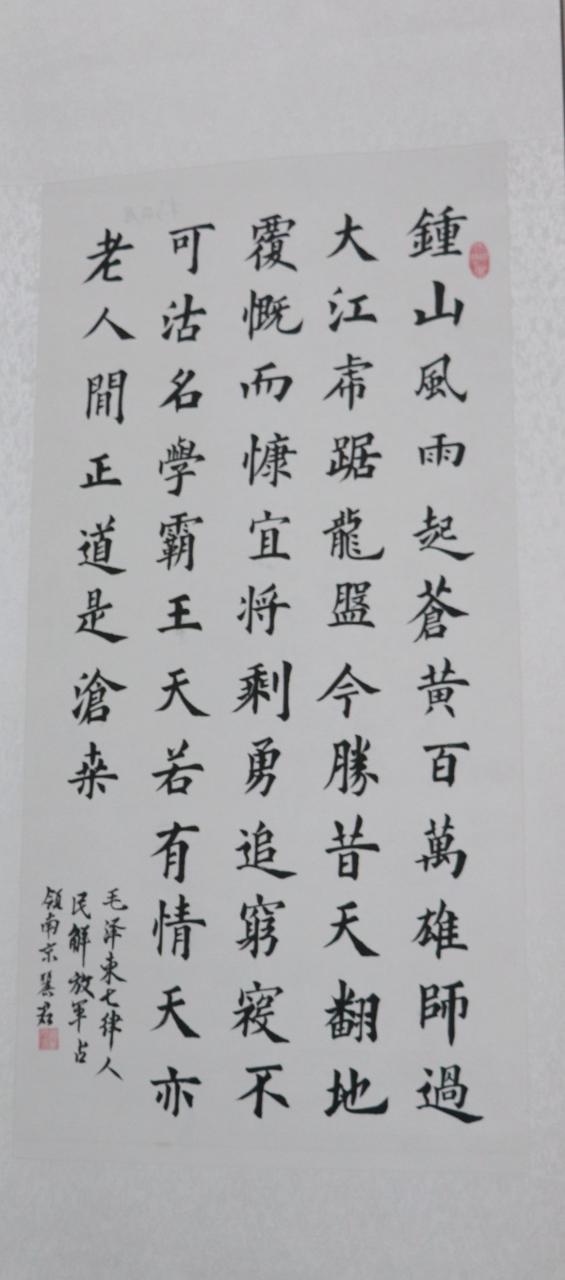 鍾山風雨起蒼黄百萬雄師過
大江虎踞龍盤今勝昔天翻地
覆慨而慷宜将剩勇追窮寇不
可沽名學霸王天若有情天亦
老人間正道是滄桒
毛泽東七律人
民解放軍占
領南京